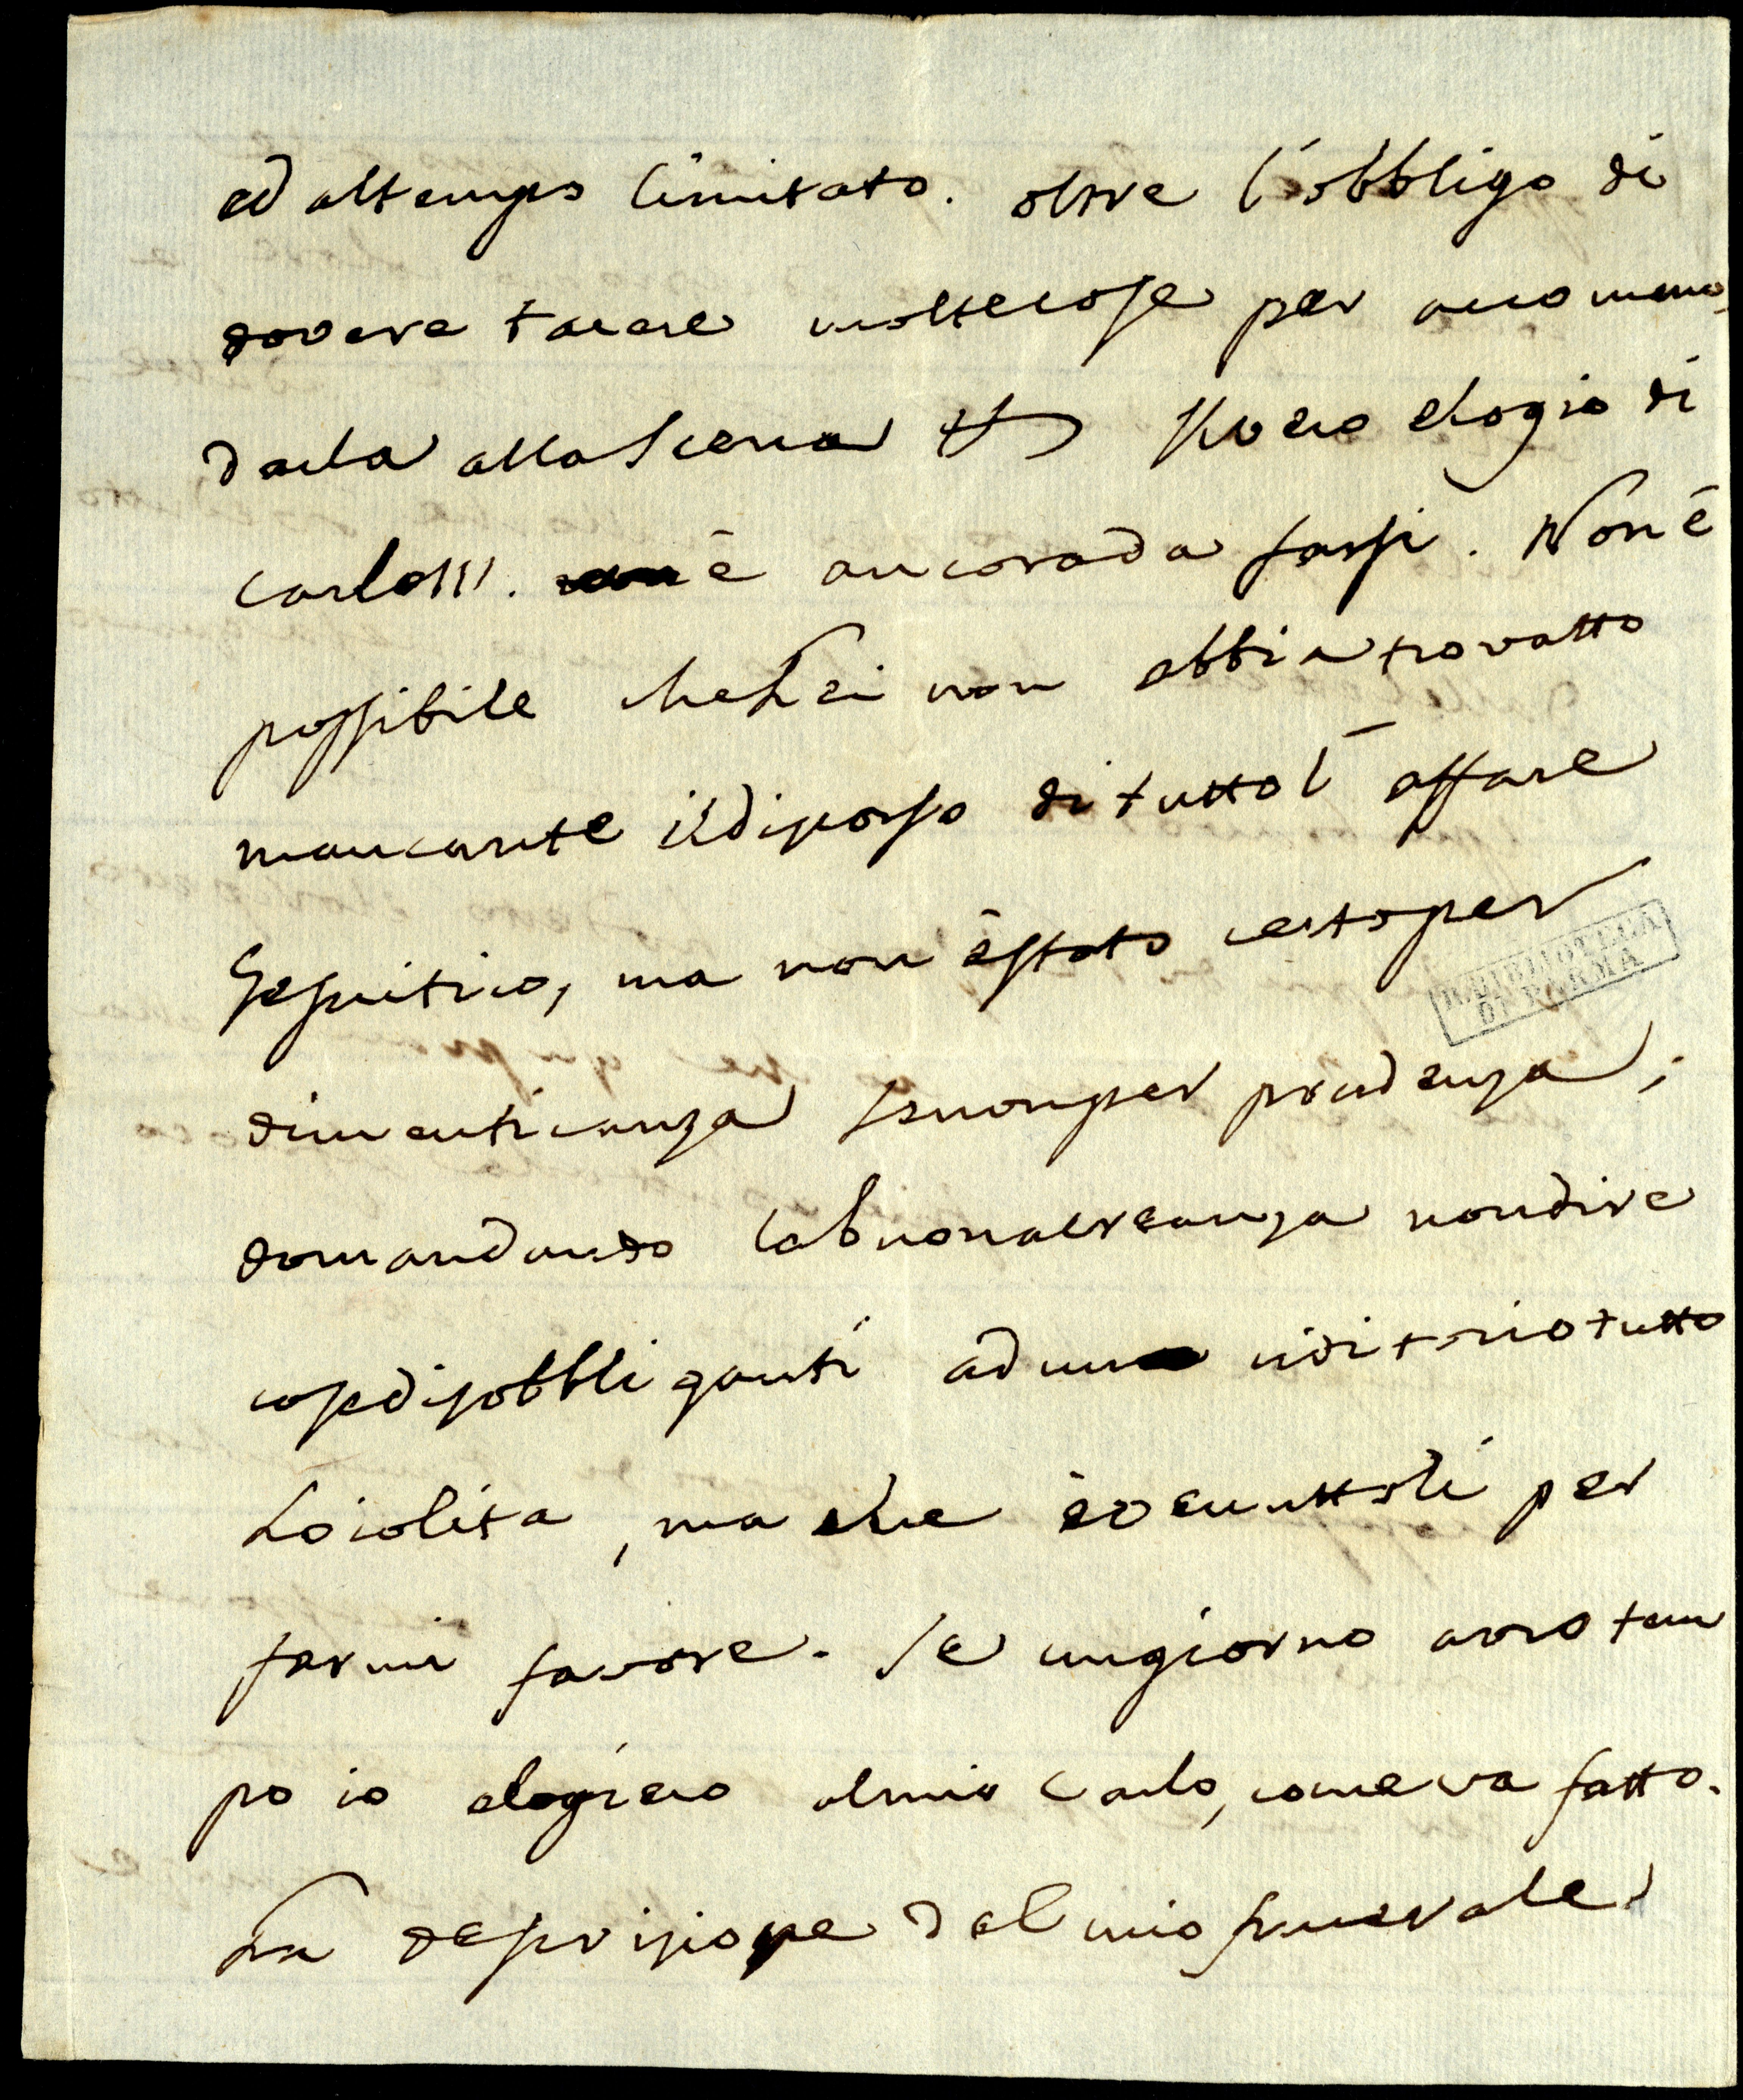 ed altempo limitato. oltre l'obbligo di
dovere tacere moltecose per accommo
darla allaScena Il vero elogio di
Carlo III. è ancorada farsi. Non è
possibile cheLei non abbia trovatto
mancante ildiscorso di tutto l'affare
Gesuitico, ma non è stato certo per
dimenticanza senonper prudenza;
domandando labuonacreanza nondire
cosedisobbliganti ad un uditorio tutto
Loiolita, ma che è venuttoli per
farmi favore. Se ungiorno avro tem
po io elogiero almio Carlo, come va fatto.
La descrisione del mio funerale
R. BIBLIOTECA
DI PARMA